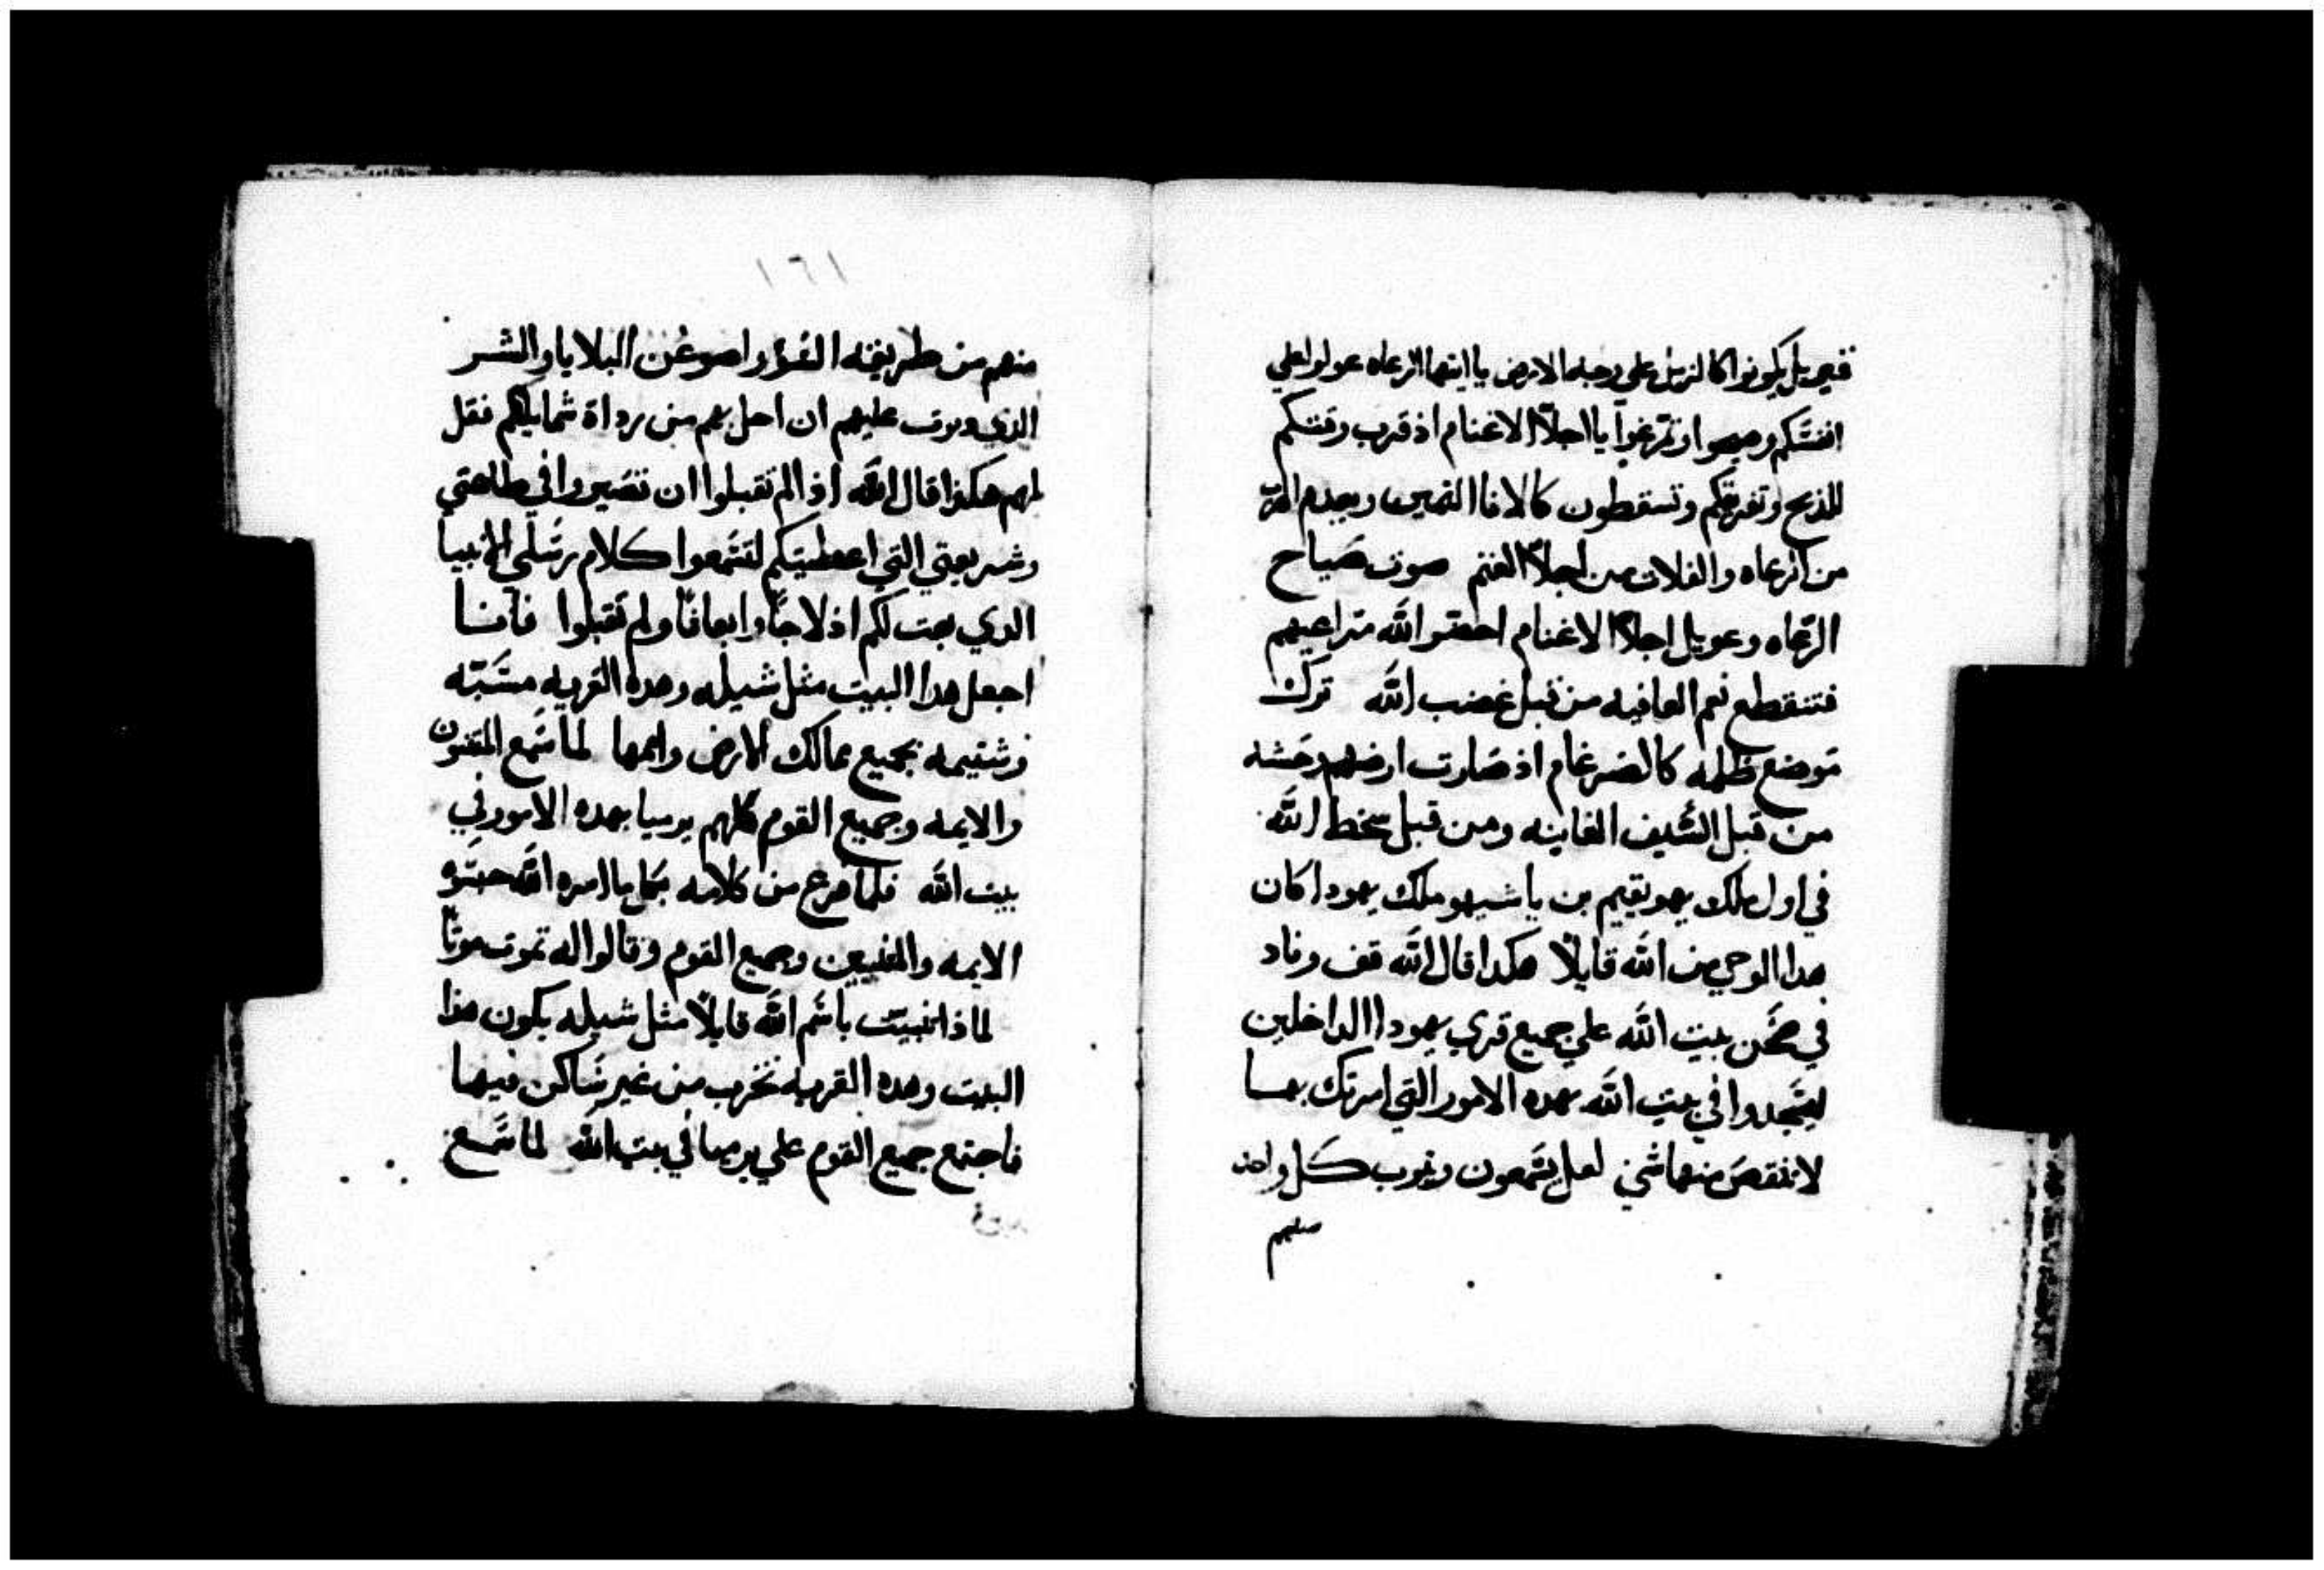 بل يكونوا كالزبل علي وجه الارض يا ايتها الرعاه عولوا علي
انفسكم وصيحوا وتمرغوا يا اجلا الاغنام اذ قرب وقتكم
للذبح وتفرقكم وتسقطون كالاناا الثمين ويعدم المفر
من الرعاه والفلات من اجلا الغنم صوت صياح
الرعاه وعويل اجلا الاغنام احقر الله مراعيهم
فتنقطع نعم العافيه من قبل غضب الله ترك
موضع ظله كالضرغام اذ صارت ارضهم وحشه
من قبل السيف الغابنه ومن قبل سخط الله
في اول ملك يهويقيم بن ياشيهو ملك يهودا كان
هدا الوحي من الله قايلا هكدا قال الله قف وناد
في صحن بيت الله علي جميع قري يهودا الداخلين
ليسجدوا في بيت الله بهده الامور التي امرتك بها
لا تنقص منها شي لعل يسمعون ويتوب كل واحد
منهم
١٦١
منهم من طريقه واصرف عن البلايا والشر
الذي نويت عليهم ان احل بهم من رداة شمايلكم فقل
لهم هكذا قال الله اذا لم تقبلوا ان تصيروا في طاعتي
وشريعتي التي اعطيتكم لتسمعوا كلام رسلي الانبيا
الدي بعت لكم ادلاجا وابعاتا ولم تقبلوا فانا
اجعل هدا البيت مثل شيله وهده القريه مسبه
وشتيمه بجميع ممالك الارض واممها لما سمع المتنبون
والايمه وجميع القوم كلهم يرميا بهده الامور في
بيت الله فلما فرغ من كلامه بكل ما امره الله حبسوه
الايمه والمتنبيين وجميع القوم وقالوا له تموت موتا
لماذا تنبيت باسم الله قايلا مثل شيله يكون هذا
البيت وهده القريه تخرب من غير ساكن فيها
فاجتمع جميع القوم علي يرميا في بيت الله لما سمع